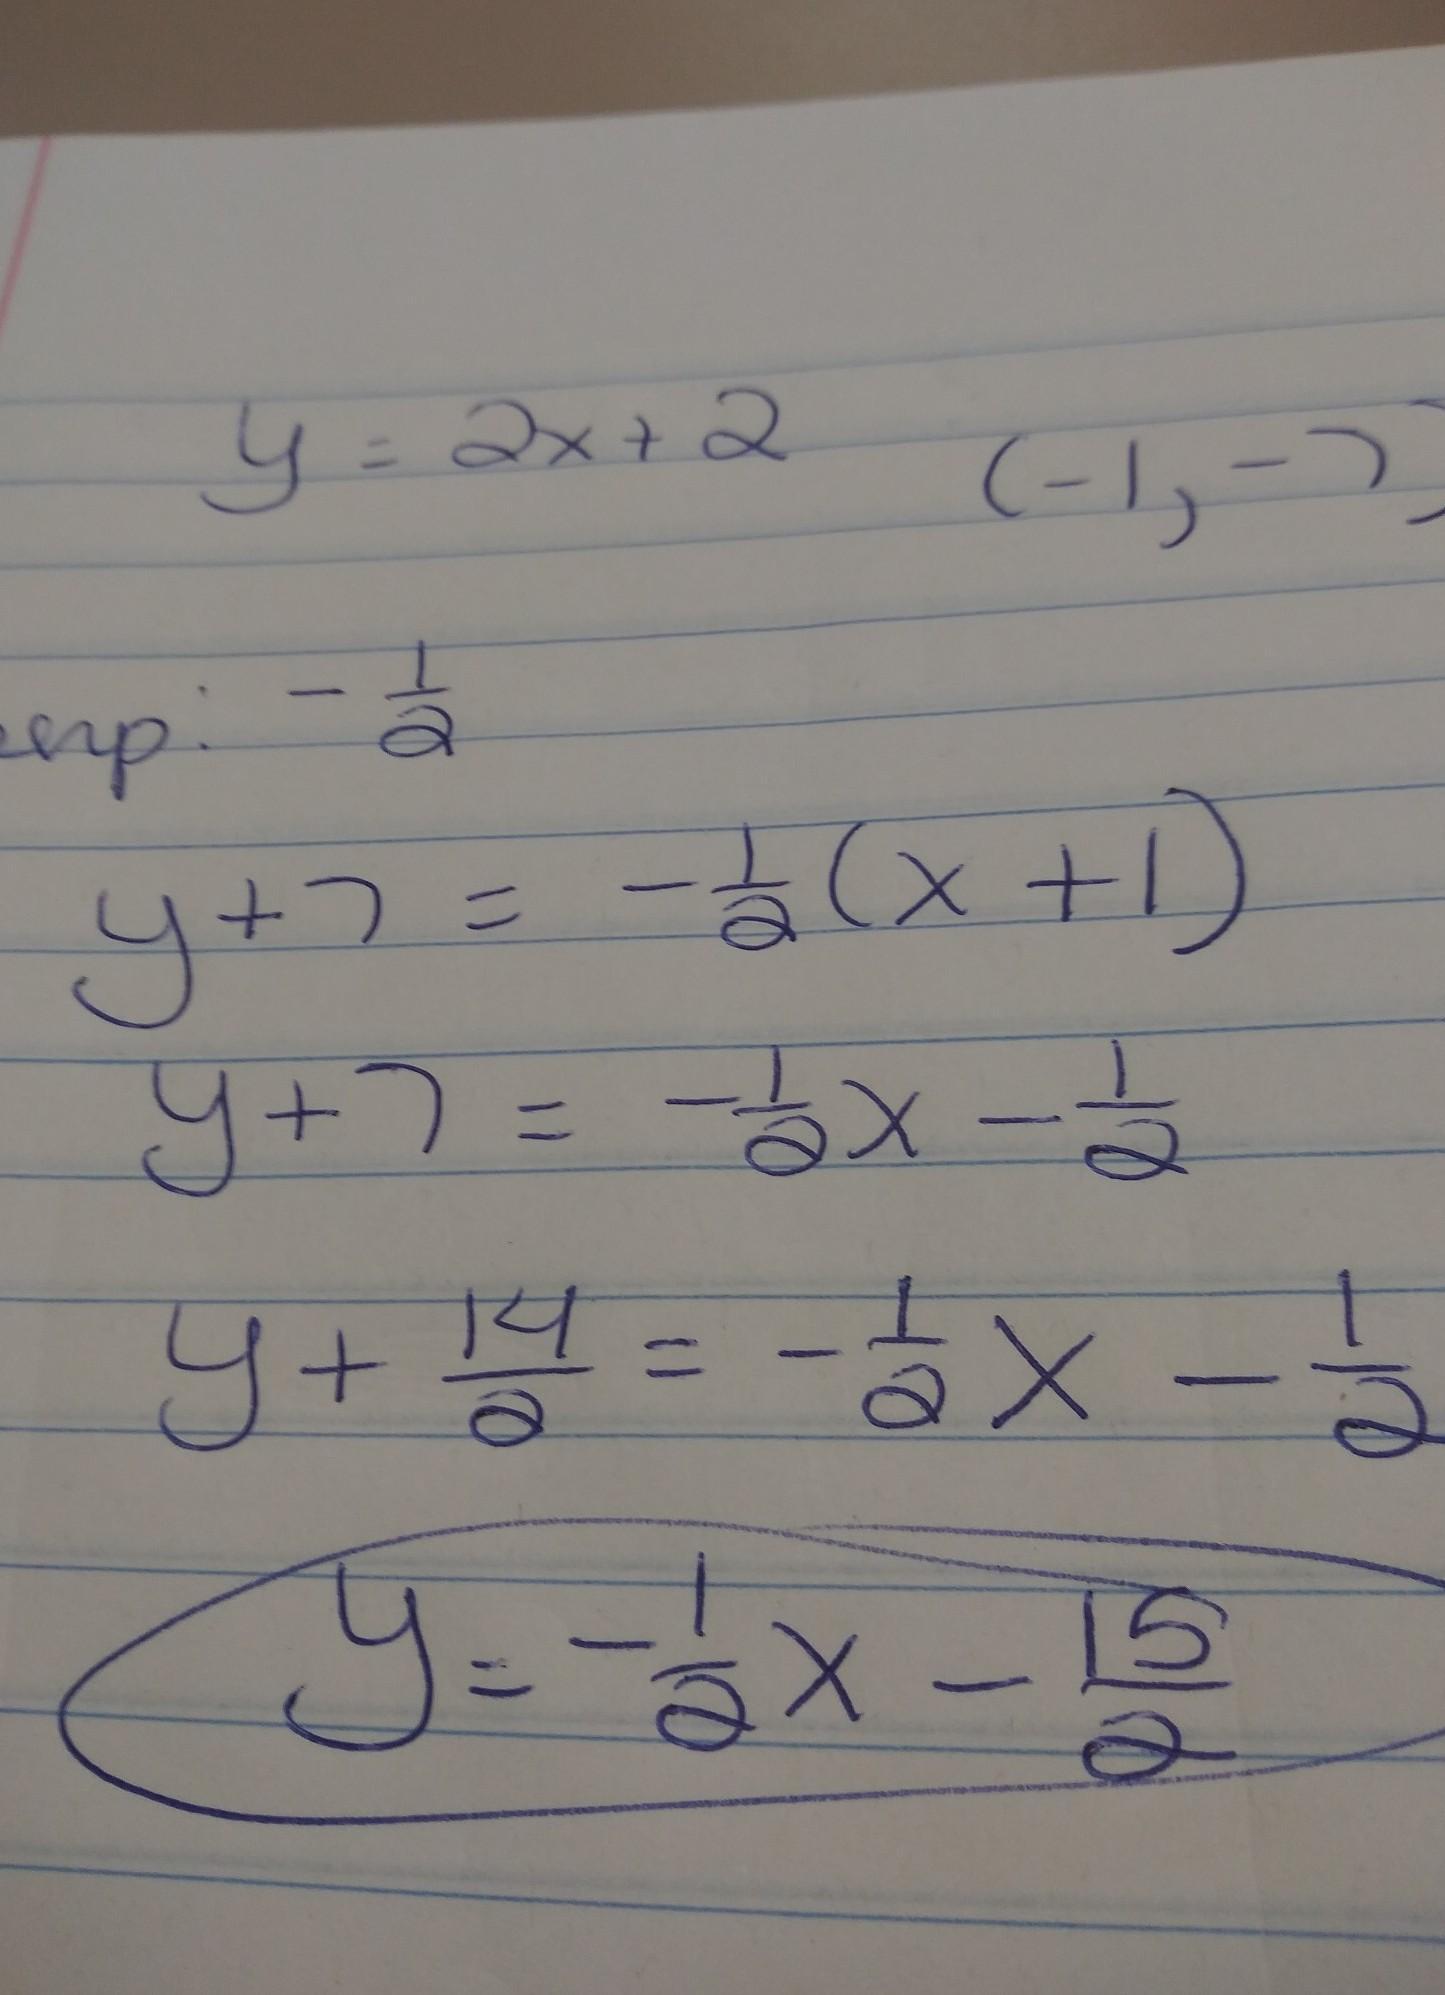 y = 2x + 2 (-1, -7)
erp: - 1/2
y + 7 = - 1/2 (x + 1)
y + 7 = - 1/2 x - 1/2
y + 14/2 = - 1/2 x - 1/2
y = - 1/2 x - 15/2